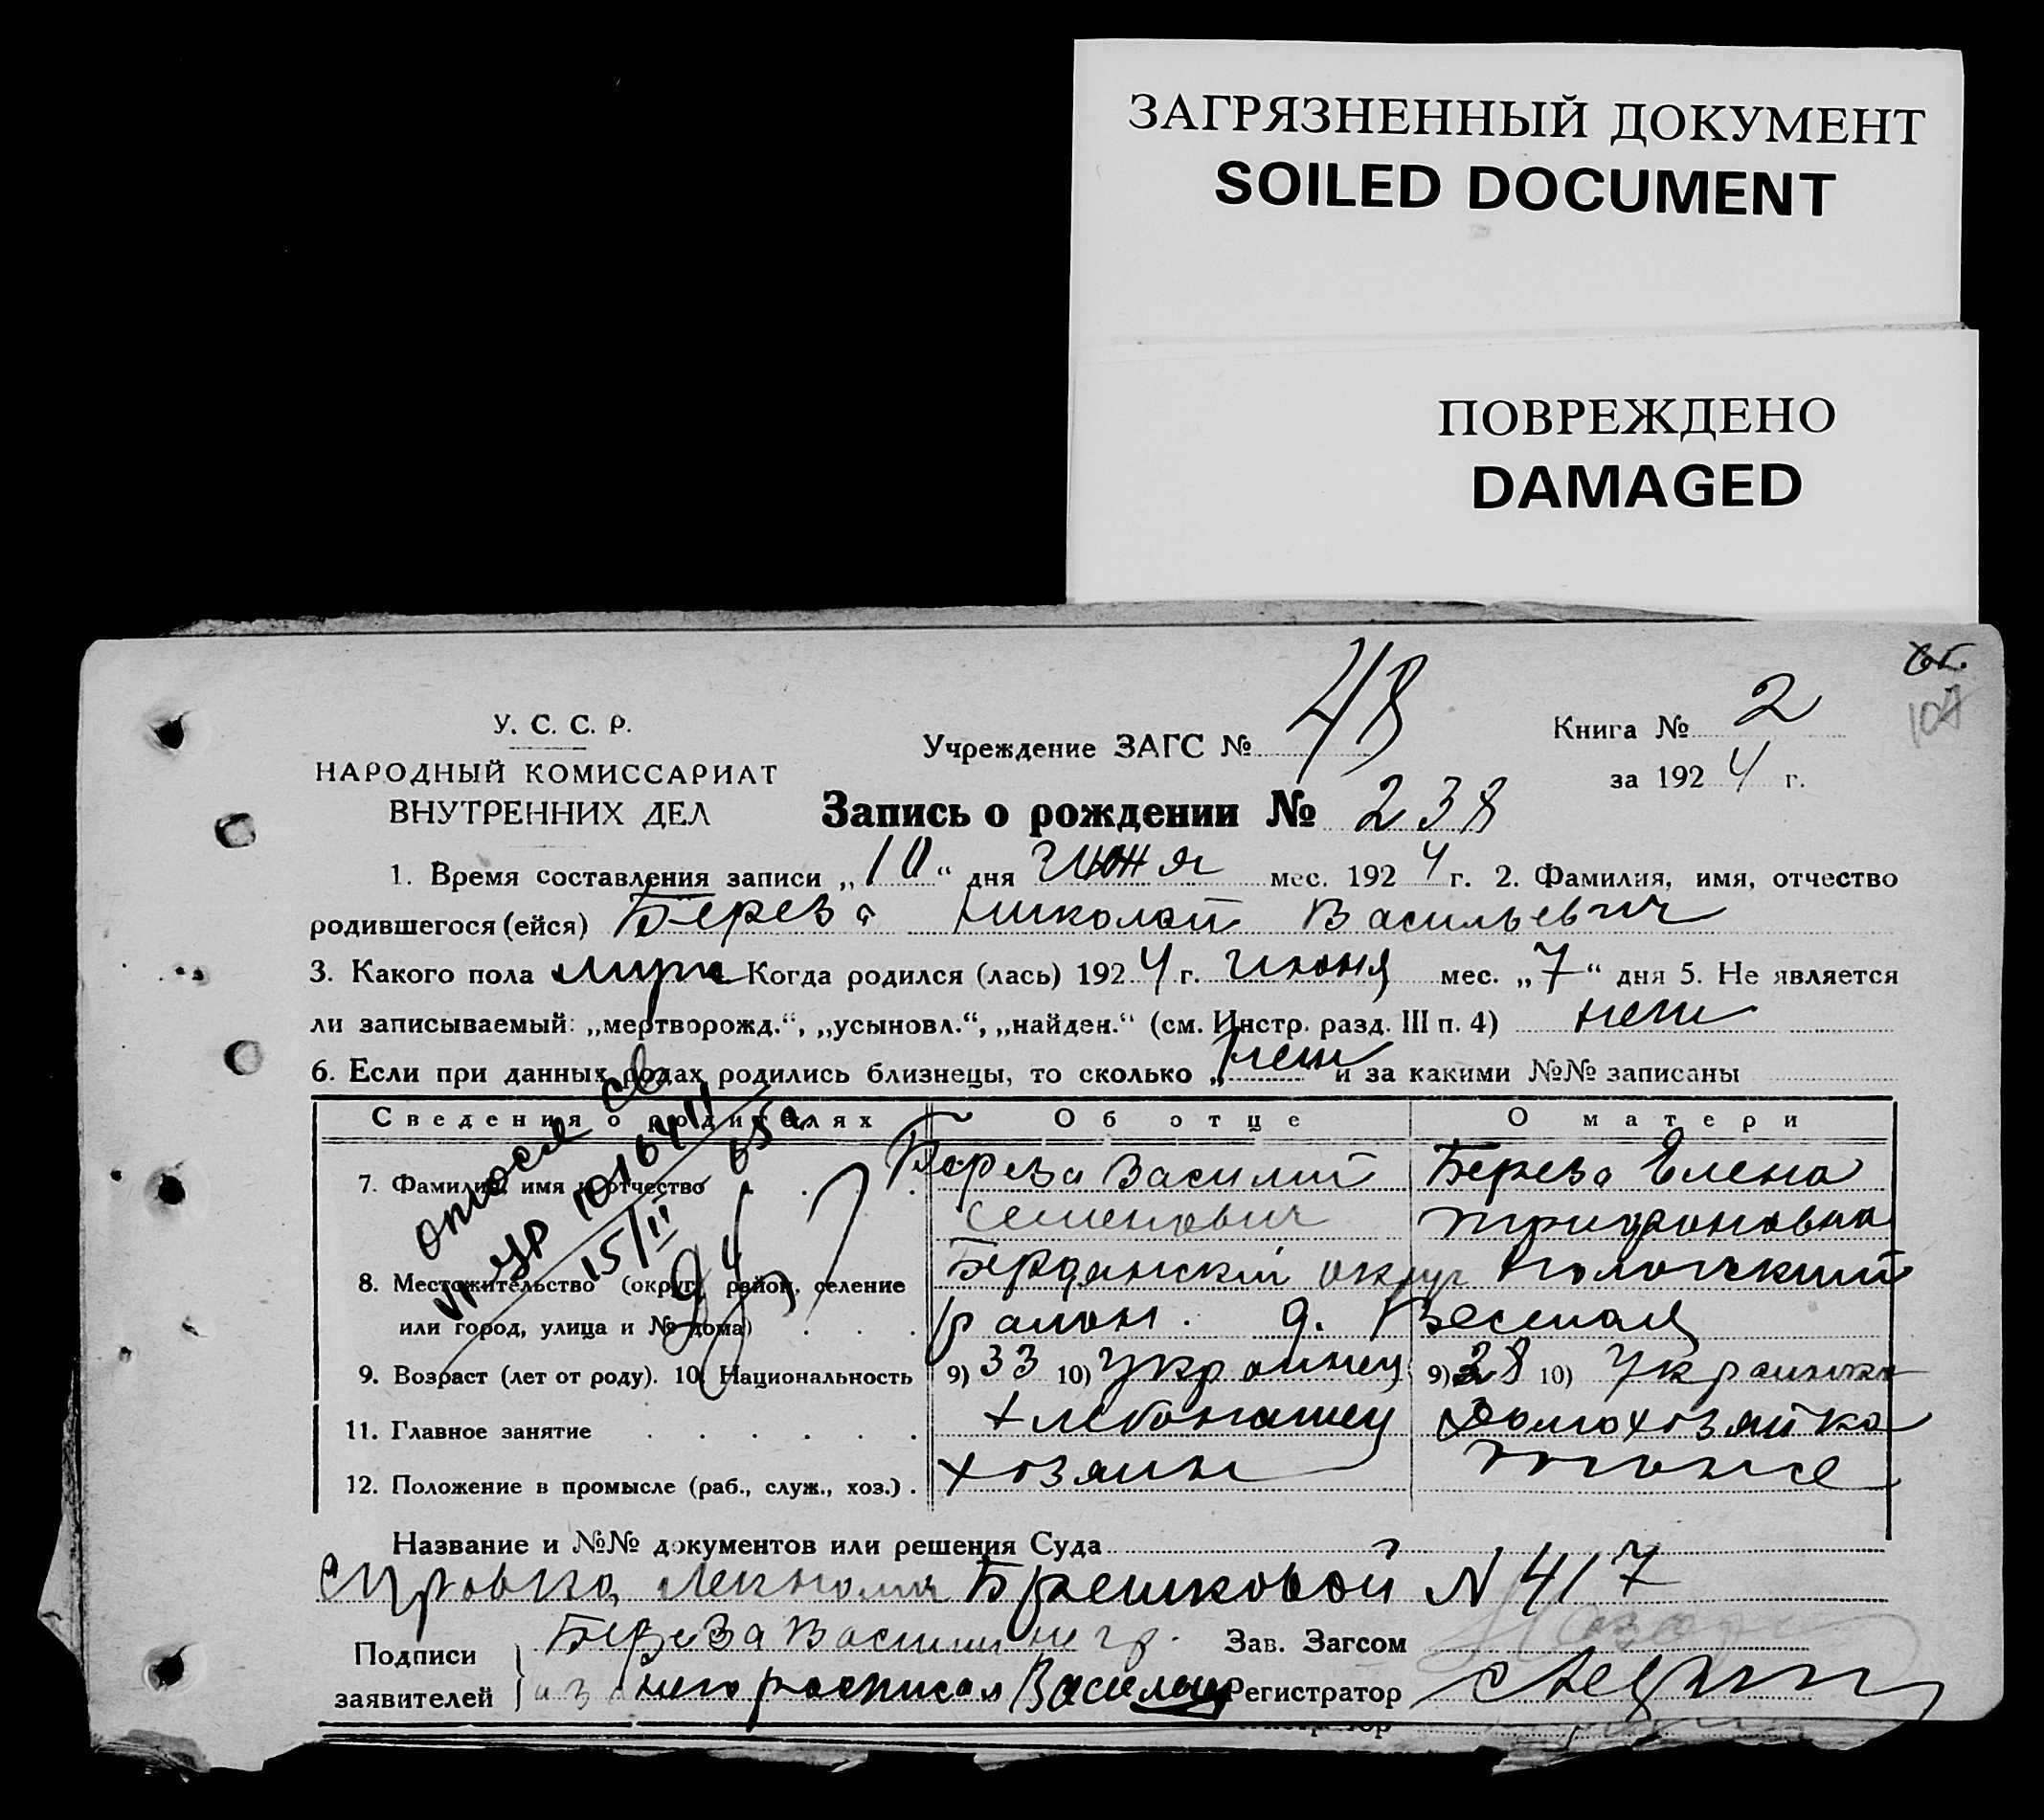 ЗАГРЯЗНЕННЫЙ ДОКУМЕНТ
SOILED DOCUMENT
ПОВРЕЖДЕНО
DAMAGED
107
У. С. С. Р.
НАРОДНЫЙ КОМИССАРИАТ
ВНУТРЕННИХ ДЕЛ
Учреждение ЗАГС № 48
Книга № 2
за 1924 г.
Запись о рождении № 238
1. Время составления записи „10“ дня июня мес. 1924 г. 2. Фамилия, имя, отчество
родившегося (ейся) Береза Николай Васильевич
3. Какого пола муж Когда родился (лась) 1924 г. июня мес. „7“ дня 5. Не является
ли записываемый: „мертворожд.“, „усыновл.“, „найден.“ (см. Инстр. разд. III п. 4) нет
6. Если при данных родах родились близнецы, то сколько „нет и за какими №№ записаны
Сведения о родителях Об отце О матери
7. Фамилия, имя и отчество Береза Василий Береза Елена
Семенович Трифоновна
8. Местожительство (округ, район, селение Бердянский округ Пологский
или город, улица и № дома) район. д. Веселая
9. Возраст (лет от роду). 10. Национальность 9) 33 10) Украинец 9) 28 10) Украинка
11. Главное занятие Хлебопашец Домохозяйка
12. Положение в промысле (раб., служ., хоз.) хозяин тоже
15/II
Название и №№ документов или решения Суда
Справка Лекпома Брешковой N 417
Подписи Береза Василий негр. Зав. Загсом
заявителей за него расписался Регистратор